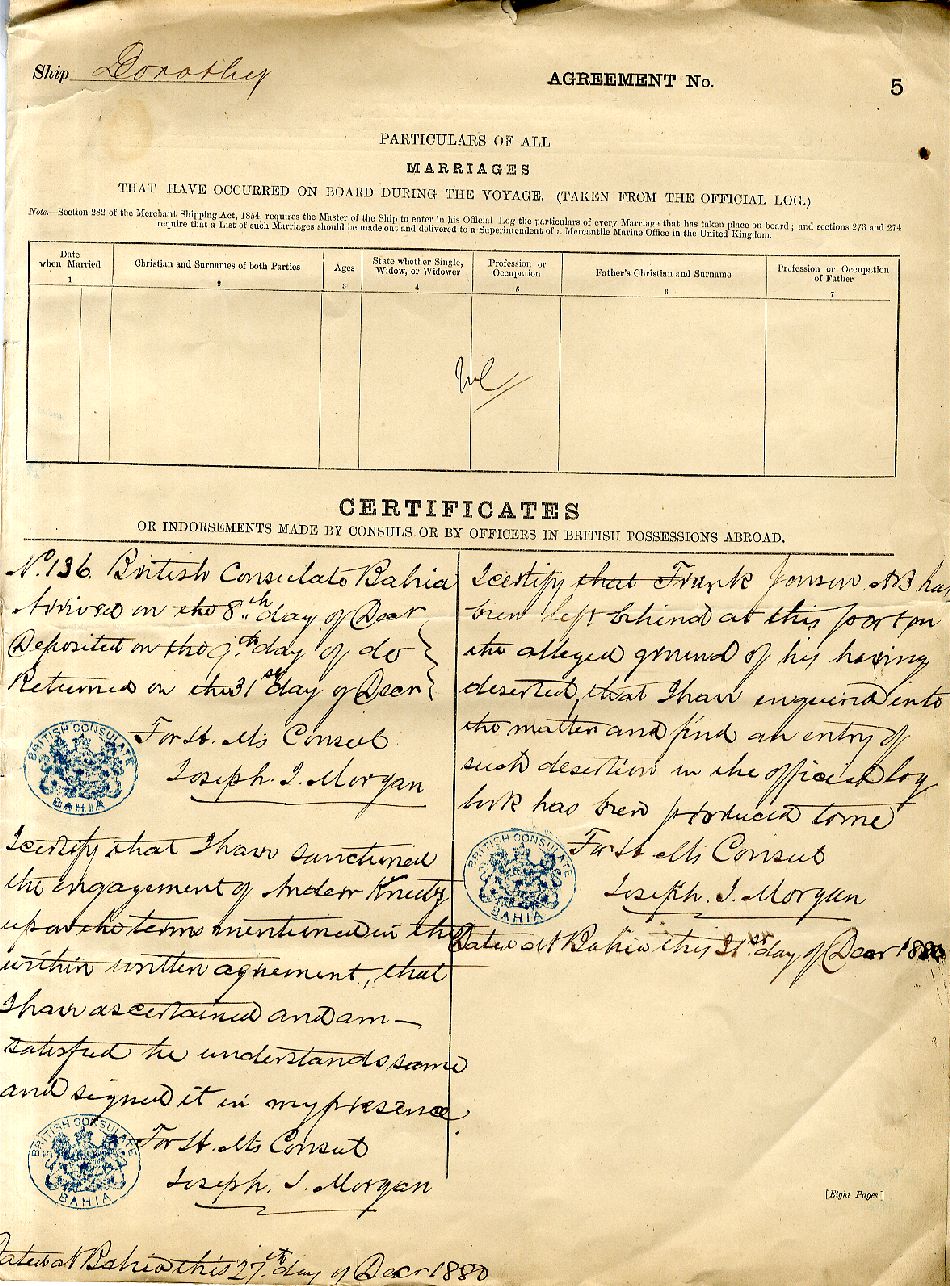 Ship Dorothy
AGREEMENT No.
5
PARTICULARS OF ALL
MARRIAGES
THAT HAVE OCCURRED ON BOARD DURING THE VOYAGE. (TAKEN FROM THE OFFICIAL LOG.)
Note.—Section 282 of the Merchant Shipping Act, 1854, requires the Master of the Ship to enter in his Official Log the particulars of every Marriage that has taken place on board; and sections 273 and 274
require that a List of such Marriages should be made out and delivered to a Superintendent of a Mercantile Marine Office in the United Kingdom.
Date when Married
Christian and Surnames of both Parties
Ages
State whether Single, Widow, or Widower
Profession or Occupation
Father's Christian and Surname
Profession or Occupation of Father
1 2 3 4 5 6 7
Nil
CERTIFICATES
OR INDORSEMENTS MADE BY CONSULS OR BY OFFICERS IN BRITISH POSSESSIONS ABROAD.
No. 136. British Consulate Bahia
Arrived on the 8th day of Decr
Deposited on the 9th day of do
Returned on the 31st day of Decr
For H. Ms Consul
Joseph. I. Morgan
BRITISH CONSULATE
BAHIA
I certify that I have sanctioned
the engagement of
upon the terms mentioned in the
within written agreement, that
I have ascertained and am
satisfied he understands same
and signed it in my presence.
For H. Ms Consul
Joseph. I. Morgan
BRITISH CONSULATE
BAHIA
Dated at Bahia this 27th day of Decr 1880
I certify that Frank Jonson AB has
been left behind at this port on
the alleged ground of his having
deserted, that I have enquired into
the matter and find an entry of
such desertion in the official log
book has been produced to me
For H. Ms Consul
Joseph. I. Morgan
BRITISH CONSULATE
BAHIA
Dated at Bahia this 31st day of Decr 1880
[Eight Pages]